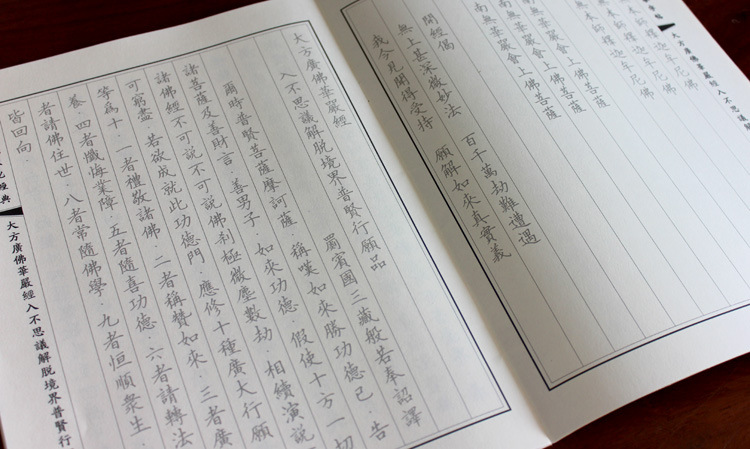 大方廣佛華嚴經入不思議
本師釋迦牟尼佛
無本師釋迦牟尼佛
南無華嚴會上佛菩薩
南無華嚴會上佛菩薩
南無華嚴會上佛菩薩
開經偈
無上甚深微妙法 百千萬劫難遭遇
我今見聞得受持 願解如來真實義
大方廣佛華嚴經
入不思議解脫境界普賢行願品 罽賓國三藏般若奉詔譯
爾時普賢菩薩摩訶薩．稱嘆如來勝功德已．告
諸菩薩及善財言．善男子．如來功德．假使十方一切
諸佛經不可說不可說佛剎極微塵數劫．相續演說
可窮盡．若欲成就此功德門．應修十種廣大行願
等為十．一者禮敬諸佛．二者稱赞如來．三者廣
養．四者懺悔業障．五者隨喜功德．六者請轉法
者請佛住世．八者常隨佛學．九者恒順眾生．
皆回向．
經典
大方廣佛華嚴經入不思議解脫境界普賢行